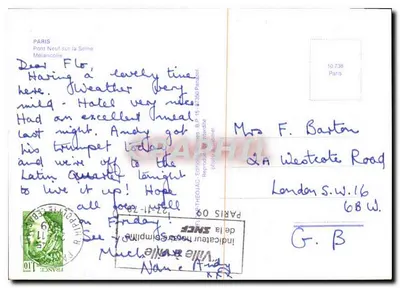 PARIS
Pont Neuf sur la Seine
Mélancolie
Dear Flo,
Having a lovely time
here. Weather very
mild - Hotel very nice
Had an excellent meal
last night. Andy got
his trumpet today
and we're off to the
Latin Quarter tonight
to live it up! Hope
all goes well
on Friday!
See you Soon
Much love
Nan & Andy
xxx
10.238
Paris
Mrs F. Barton
2A Westcote Road
London S.W.16
6BW.
G.B
PARIS 09
Ville à Ville
Indicateur horaire
de la SNCF
FRANCE
1,10